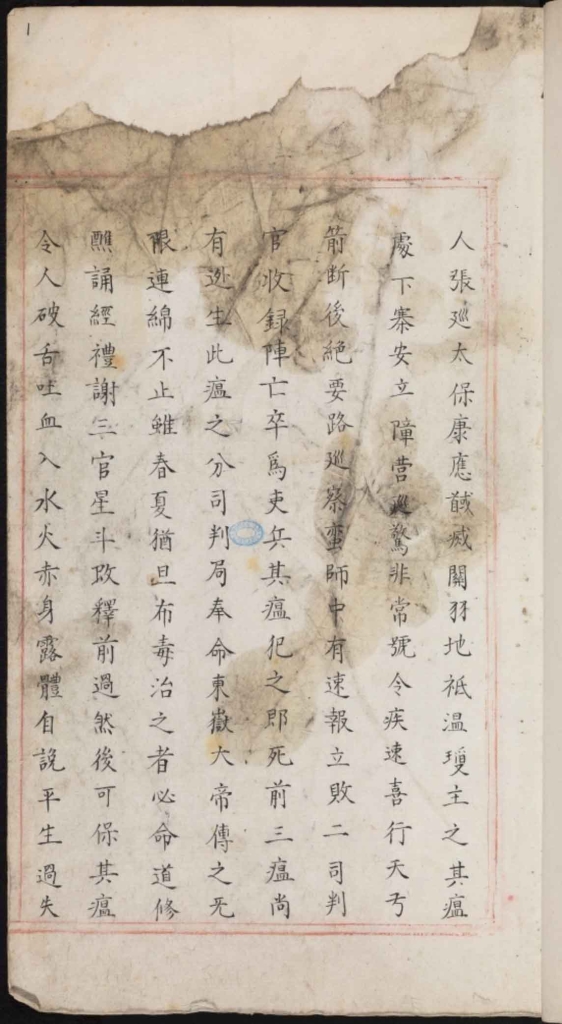 人張廵太保康應馘㓕關羽地祗温瓊主之其瘟
處下寨安立障营廵驚非常號令疾速喜行天弓
箭断後絶要路廵察蛮師中有速報立敗二司判
官收録陣亡卒爲吏兵其瘟犯之即死前三瘟尚
有迯生此瘟之分司判局奉命東嶽大帝傳之旡
限連綿不止雖春夏猶旦布毒治之者必命道修
醮誦經禮謝三官星斗改釋前過然後可保其瘟
令人破舌吐血入水火赤身露體自説平生過失
1